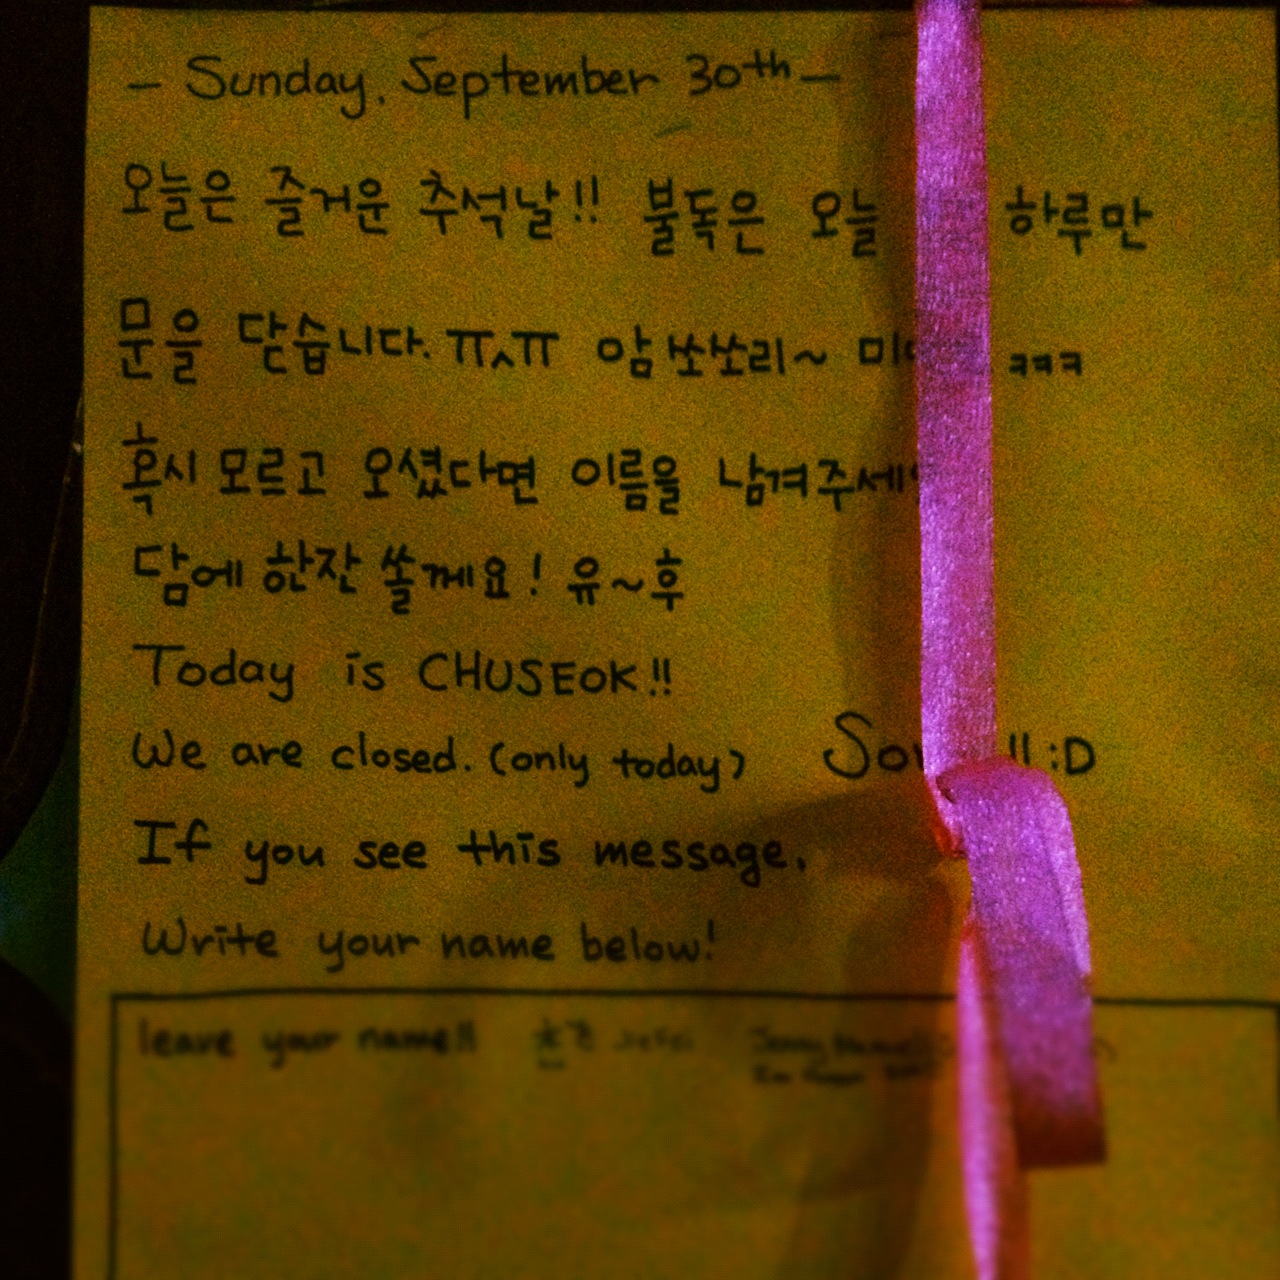 — Sunday, September 30th —
오늘은 즐거운 추석날!! 불독은 오늘 하루만
문을 닫습니다. ㅠㅅㅠ 암쏘쏘리~ ㅋㅋㅋ
혹시 모르고 오셨다면 이름을
담에 한잔 쏠께요! 유~후
Today is CHUSEOK!!
We are closed. (only today) !! :D
If you see this message,
Write your name below!
leave your name!!